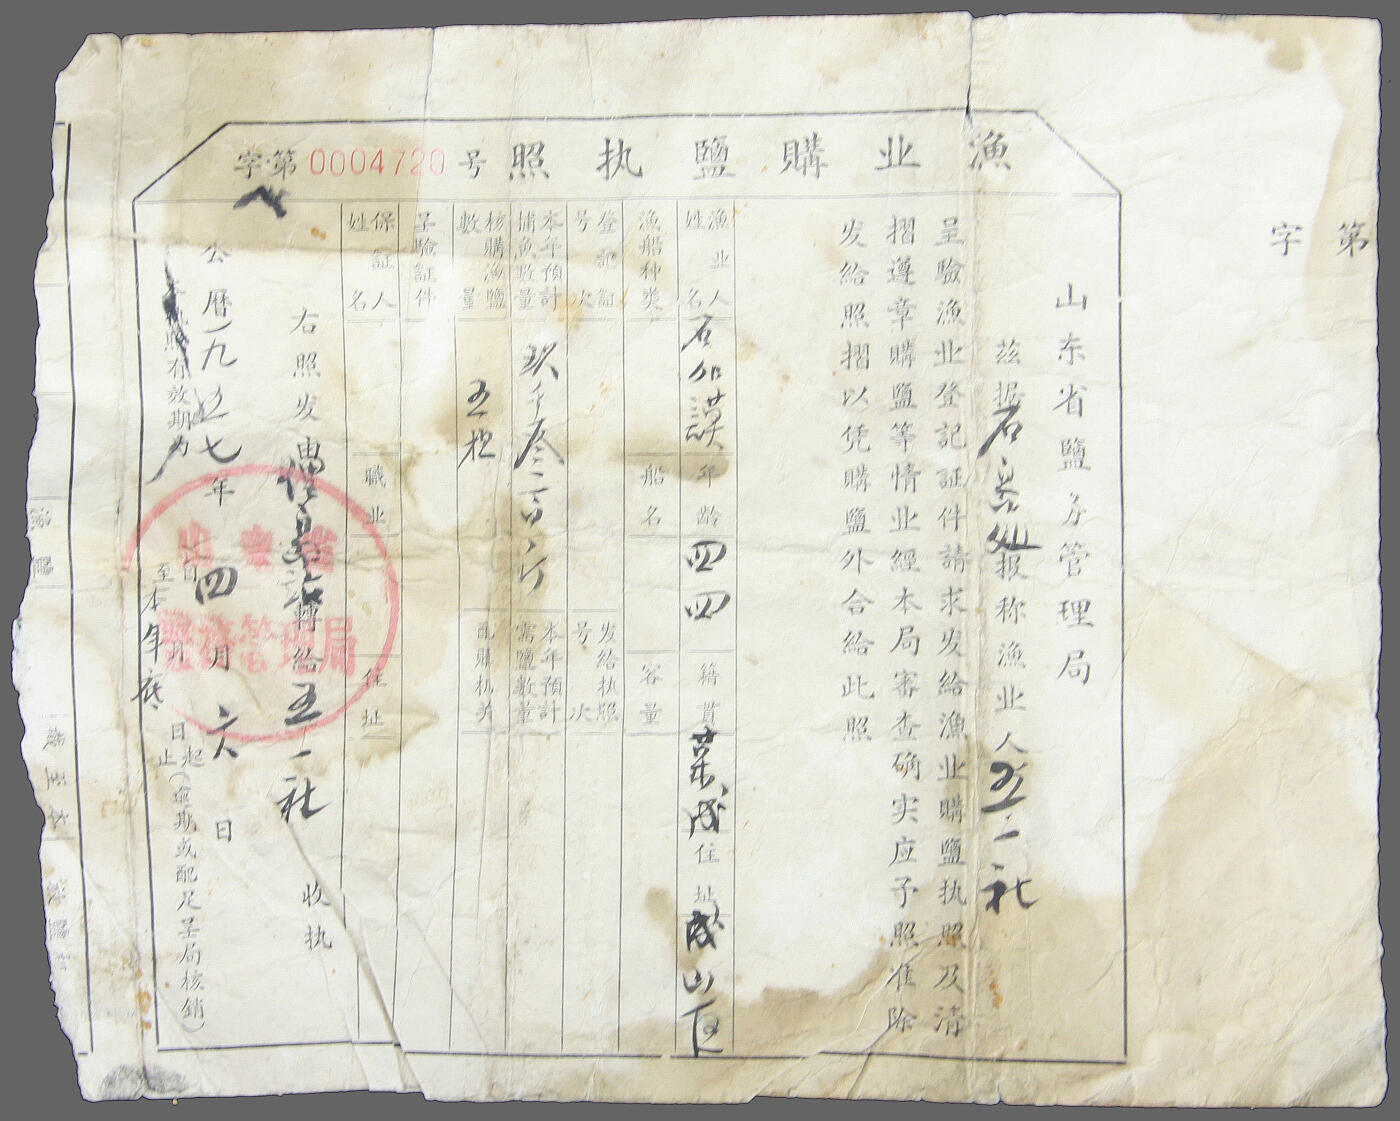 漁业購鹽执照
字第0004720号
山东省鹽务管理局
兹据石岛处报称漁业人五一社
呈驗漁业登记証件請求发給漁业購鹽执照及清
摺遵章購鹽等情业經本局審查确实应予照准除
发給照摺以凭購鹽外合給此照
漁业人姓名
年龄 四四
籍貫
住址 成山
漁船种类
船名
容量
登記号次
发給执照号次
本年預計捕魚数量 玖千叁百斤
本年預計需鹽數量
核購漁鹽數量 五担
配購机关
呈驗証件
保証人姓名
職业
住址
右照发
轉給五一社
收执
公曆一九五七年四月六日
本执照有效期为
自 月 日起
至本年底 日止
(逾期或配足呈局核銷)
山東省
鹽務管理局
第
字